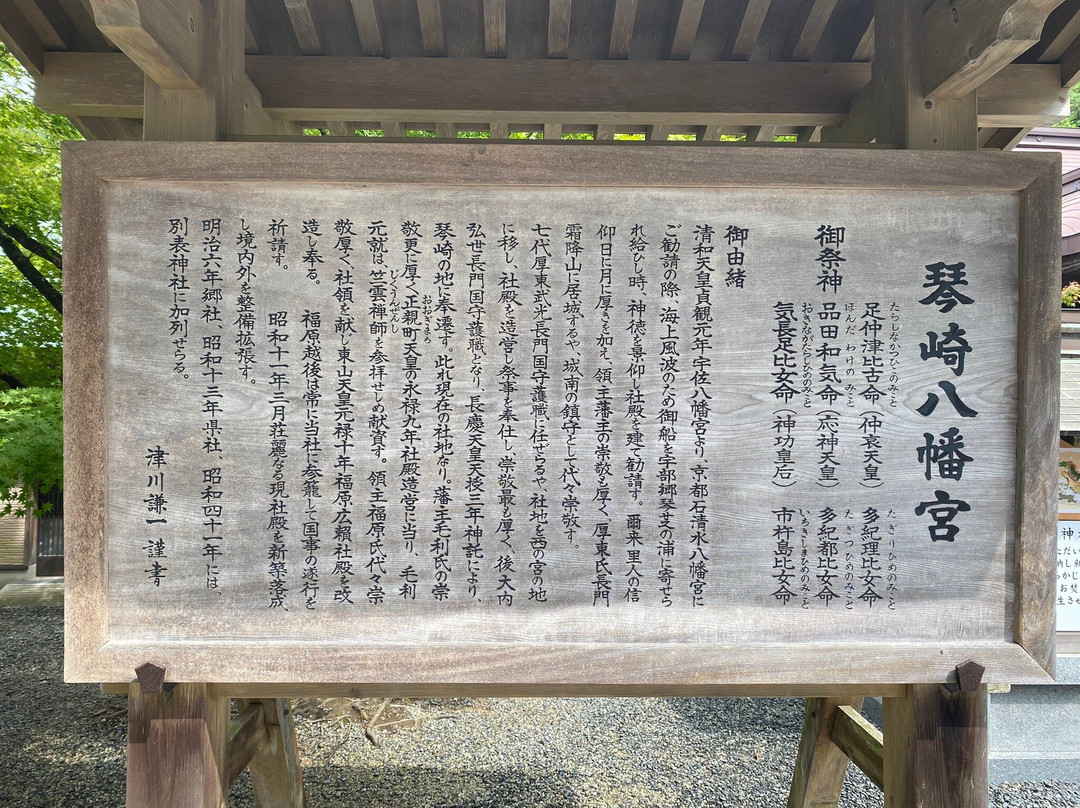 琴崎八幡宮
御祭神
たらしなかつひこのみこと
足仲津比古命（仲哀天皇）
ほんだ わけの みこと
品田和気命（応神天皇）
おきながたらしひめのみこと
気長足比女命（神功皇后）
たぎりひめのみこと
多紀理比女命
たぎつひめのみこと
多紀都比女命
いちきしまひめのみこと
市杵島比女命
御由緒
清和天皇貞観元年宇佐八幡宮より、京都石清水八幡宮に
ご勧請の際、海上風波のため御船を宇部郷琴芝の浦に寄せら
れ給ひし時、神徳を景仰し社殿を建て勧請す。爾来里人の信
仰日に月に厚きを加え、領主藩主の崇敬も厚く、厚東氏長門
霜降山に居城するや、城南の鎮守として代々崇敬す。
七代厚東武光長門国守護職に任ぜらるや、社地を西の宮の地
に移し、社殿を造営し祭事を奉仕し、崇敬最も厚く、後大内
弘世長門国守護職となり、長慶天皇天授三年神託により、
琴崎の地に奉遷す。此れ現在の社地なり。藩主毛利氏の崇
敬更に厚く正親町天皇の永禄九年社殿造営に当り、毛利
おおぎまち
元就は竺雲禅師を参拝せしめ献資す。領主福原氏代々崇
じくうんぜんし
敬厚く、社領を献じ東山天皇元禄十年福原広頼社殿を改
造し奉る。 福原越後は常に当社に参籠して国事の遂行を
祈請す。 昭和十一年三月荘麗なる現社殿を新築落成
し境内外を整備拡張す。
明治六年郷社、昭和十三年県社、昭和四十一年には、
別表神社に加列せらる。
津川謙一 謹書
神